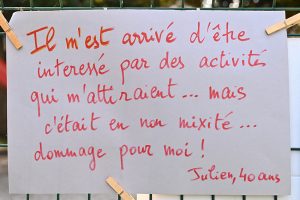 Il m'est arrivé d'être
interessé par des activités
qui m'attiraient... mais
c'était en non mixité...
dommage pour moi !
Julien, 40 ans